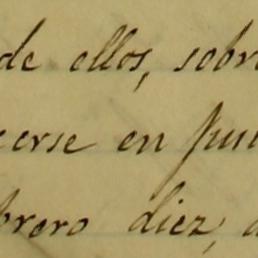 de ellos, sobr
cerse en
brero diez,